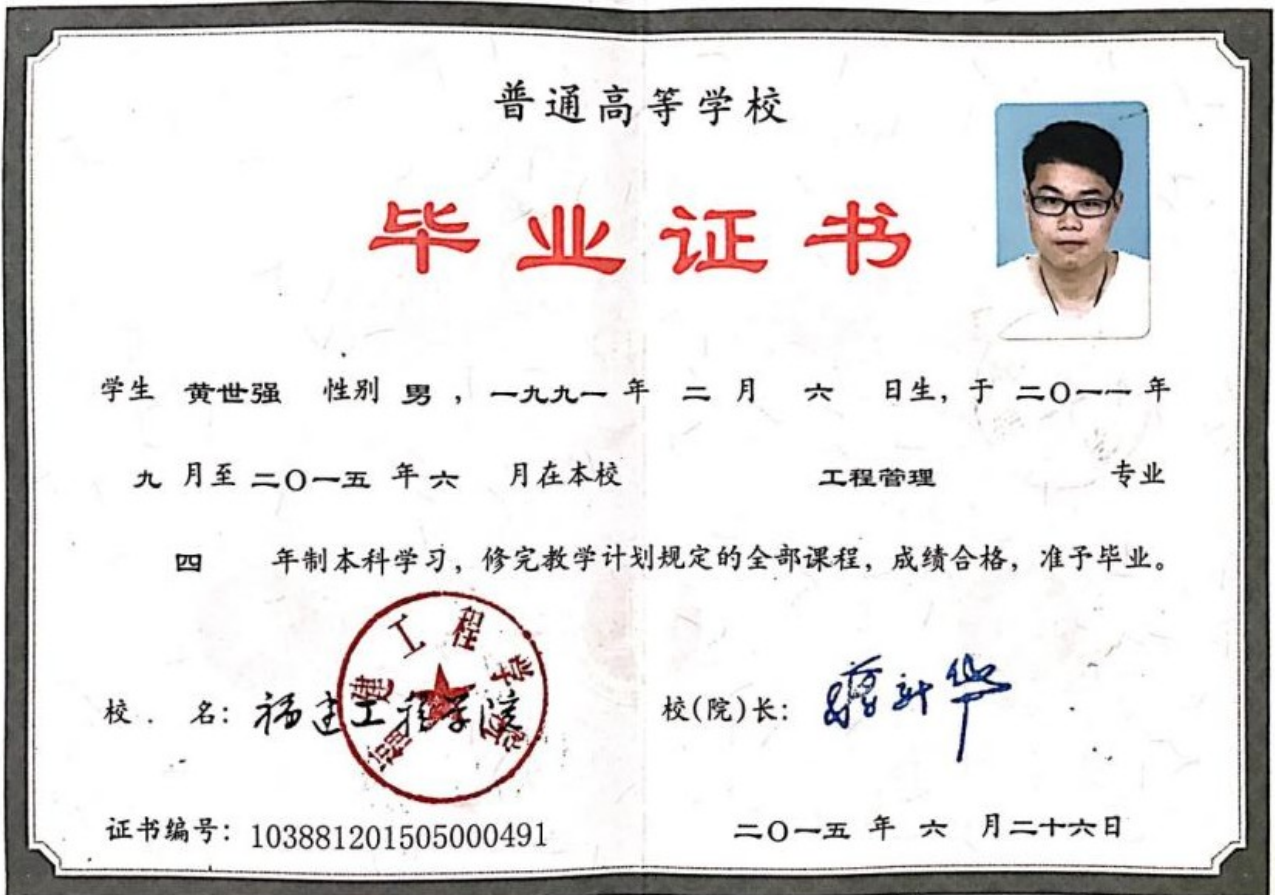 普通高等学校
毕业证书
学生 黄世强 性别 男 ，一九九一 年 二 月 六 日生，于 二〇一一 年
九 月至 二〇一五 年 六 月在本校 工程管理 专业
四 年制本科学习，修完教学计划规定的全部课程，成绩合格，准予毕业。
福建工程学院
校 名：福建工程学院 校(院)长：蒋新华
证书编号：103881201505000491 二〇一五 年 六 月二十六日